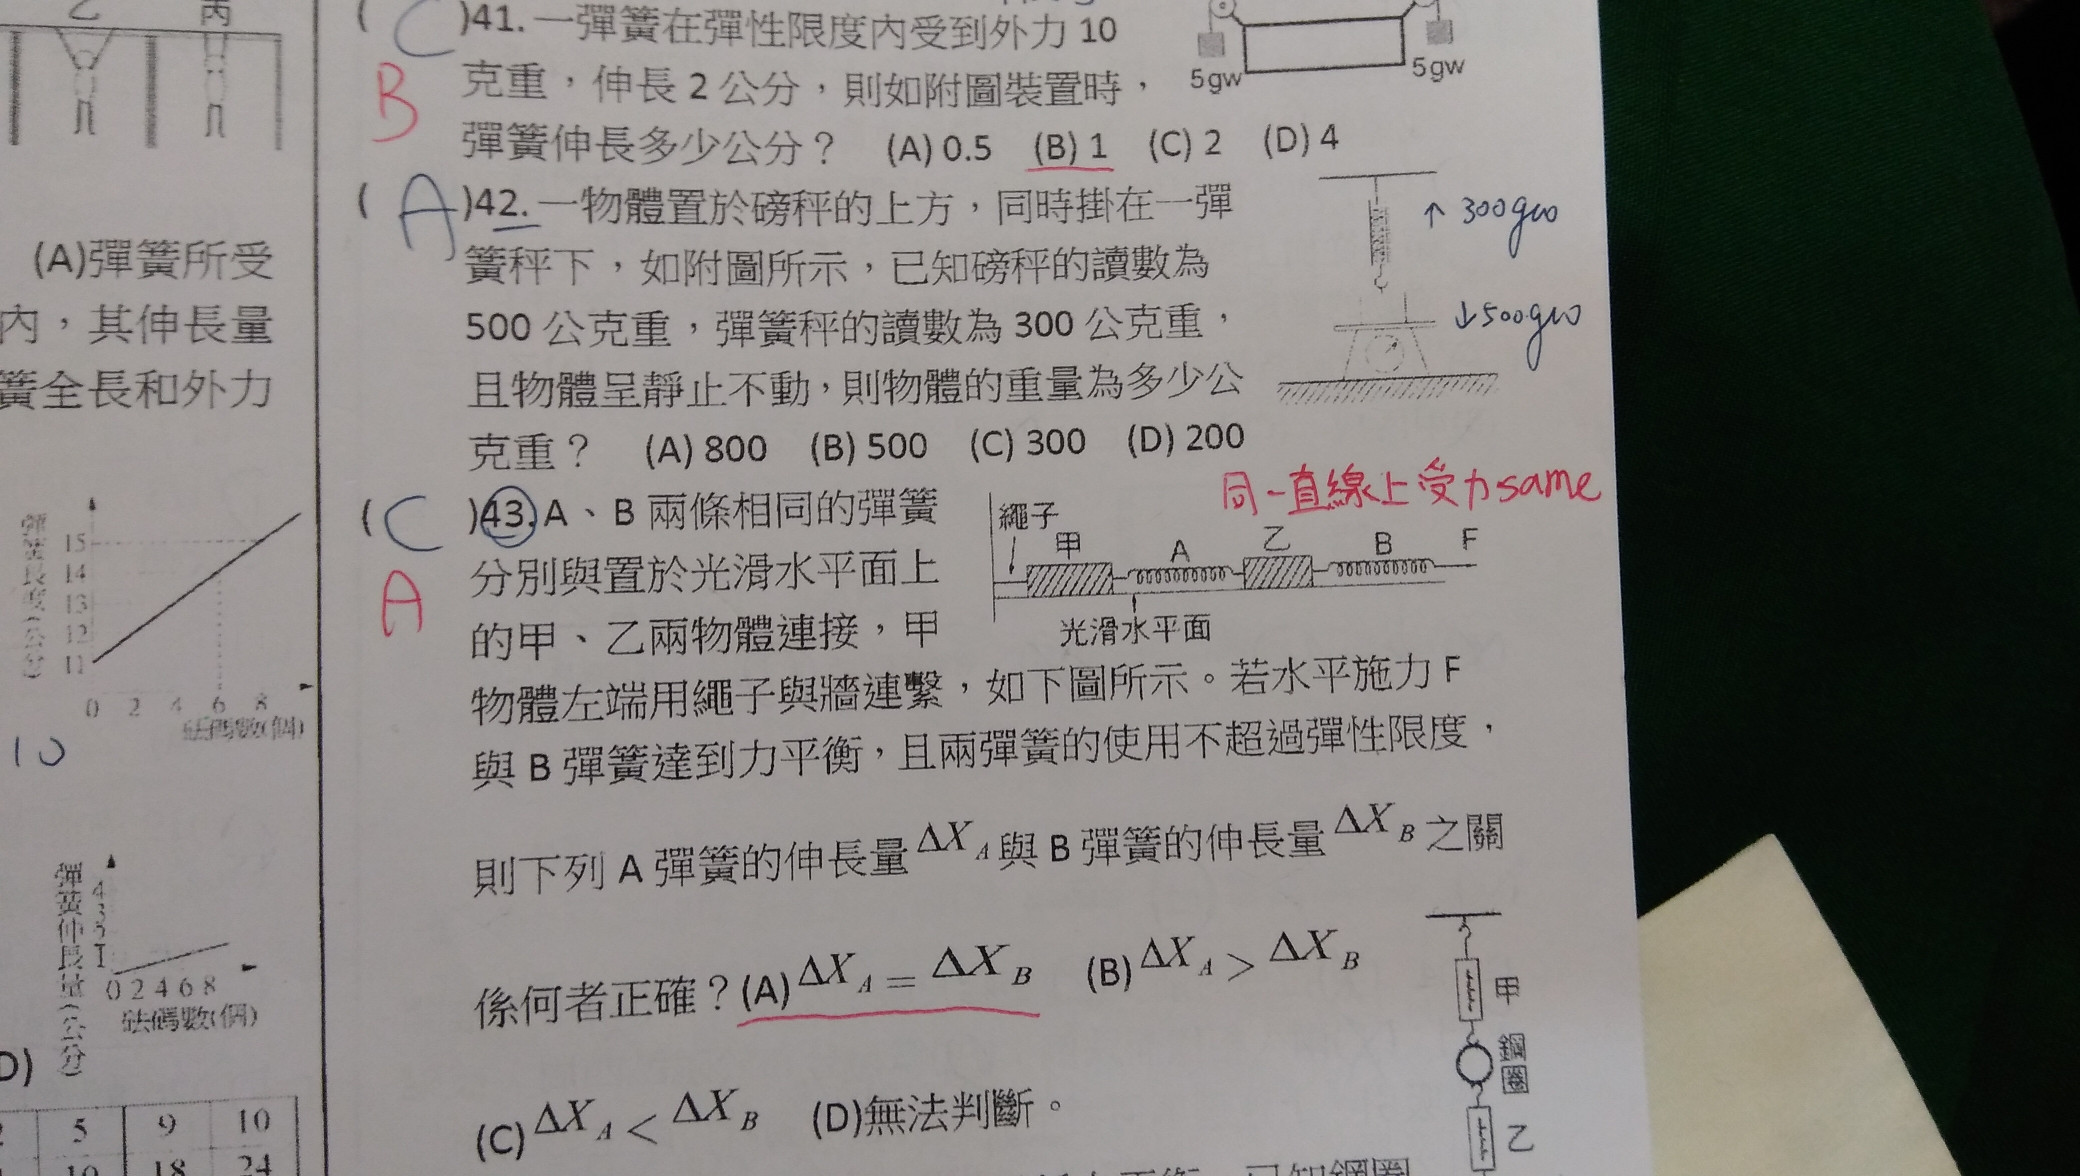 乙 丙
(A)彈簧所受
內，其伸長量
簧全長和外力
彈簧長度(公分)
15
14
13
12
11
0 2 4 6 8
砝碼數(個)
10
彈簧伸長量(公分)
4
3
2
1
0 2 4 6 8
砝碼數(個)
D)
5 9 10
10 18 24
( C )41. 一彈簧在彈性限度內受到外力 10
B
克重，伸長 2 公分，則如附圖裝置時，
彈簧伸長多少公分？ (A) 0.5 (B) 1 (C) 2 (D) 4
5gw 5gw
( A )42. 一物體置於磅秤的上方，同時掛在一彈
簧秤下，如附圖所示，已知磅秤的讀數為
500 公克重，彈簧秤的讀數為 300 公克重，
且物體呈靜止不動，則物體的重量為多少公
克重？ (A) 800 (B) 500 (C) 300 (D) 200
↑ 300gw
↓500gw
( C )43. A、B 兩條相同的彈簧
A
分別與置於光滑水平面上
的甲、乙兩物體連接，甲
物體左端用繩子與牆連繫，如下圖所示。若水平施力 F
與 B 彈簧達到力平衡，且兩彈簧的使用不超過彈性限度，
則下列 A 彈簧的伸長量 ΔX_A 與 B 彈簧的伸長量 ΔX_B 之關
係何者正確？(A) ΔX_A = ΔX_B (B) ΔX_A > ΔX_B
(C) ΔX_A < ΔX_B (D)無法判斷。
同一直線上受力same
繩子
甲 A 乙 B F
光滑水平面
甲
鋼圈
乙